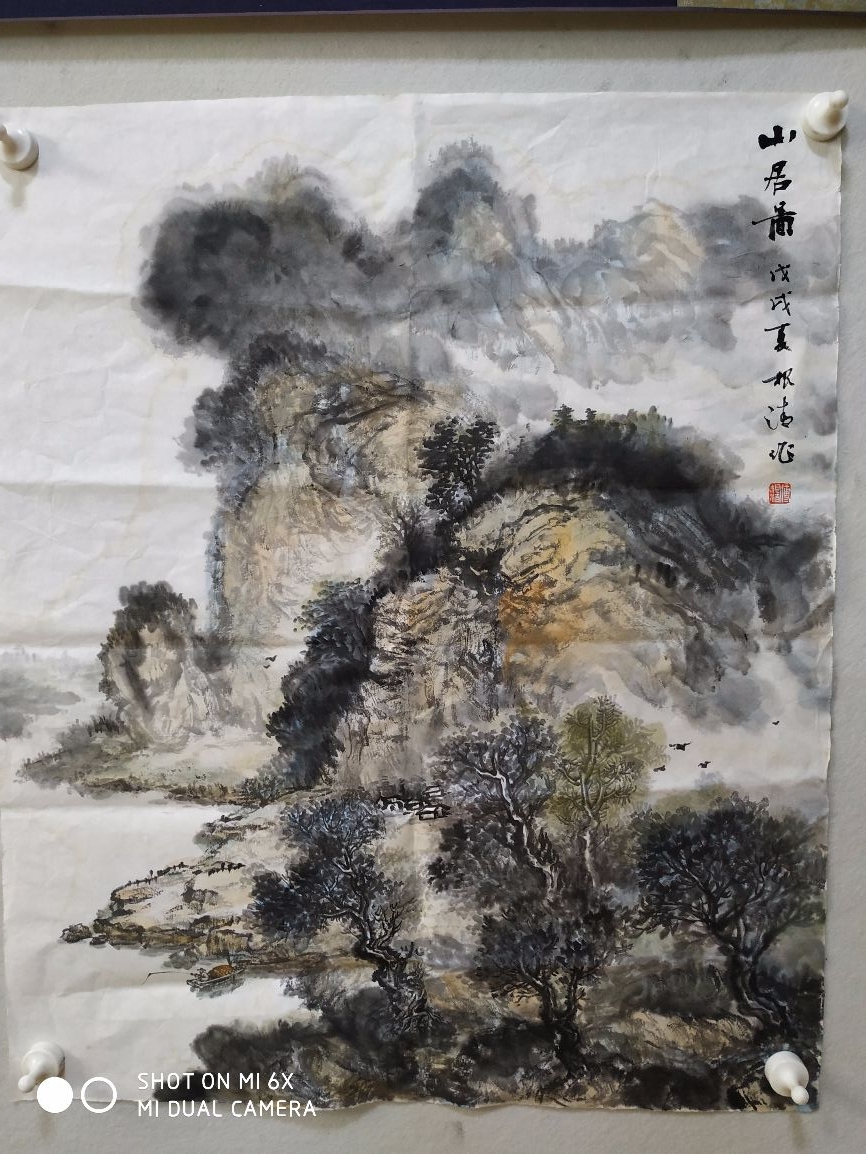 山居图
戊戌夏根清作
SHOT ON MI 6X
MI DUAL CAMERA